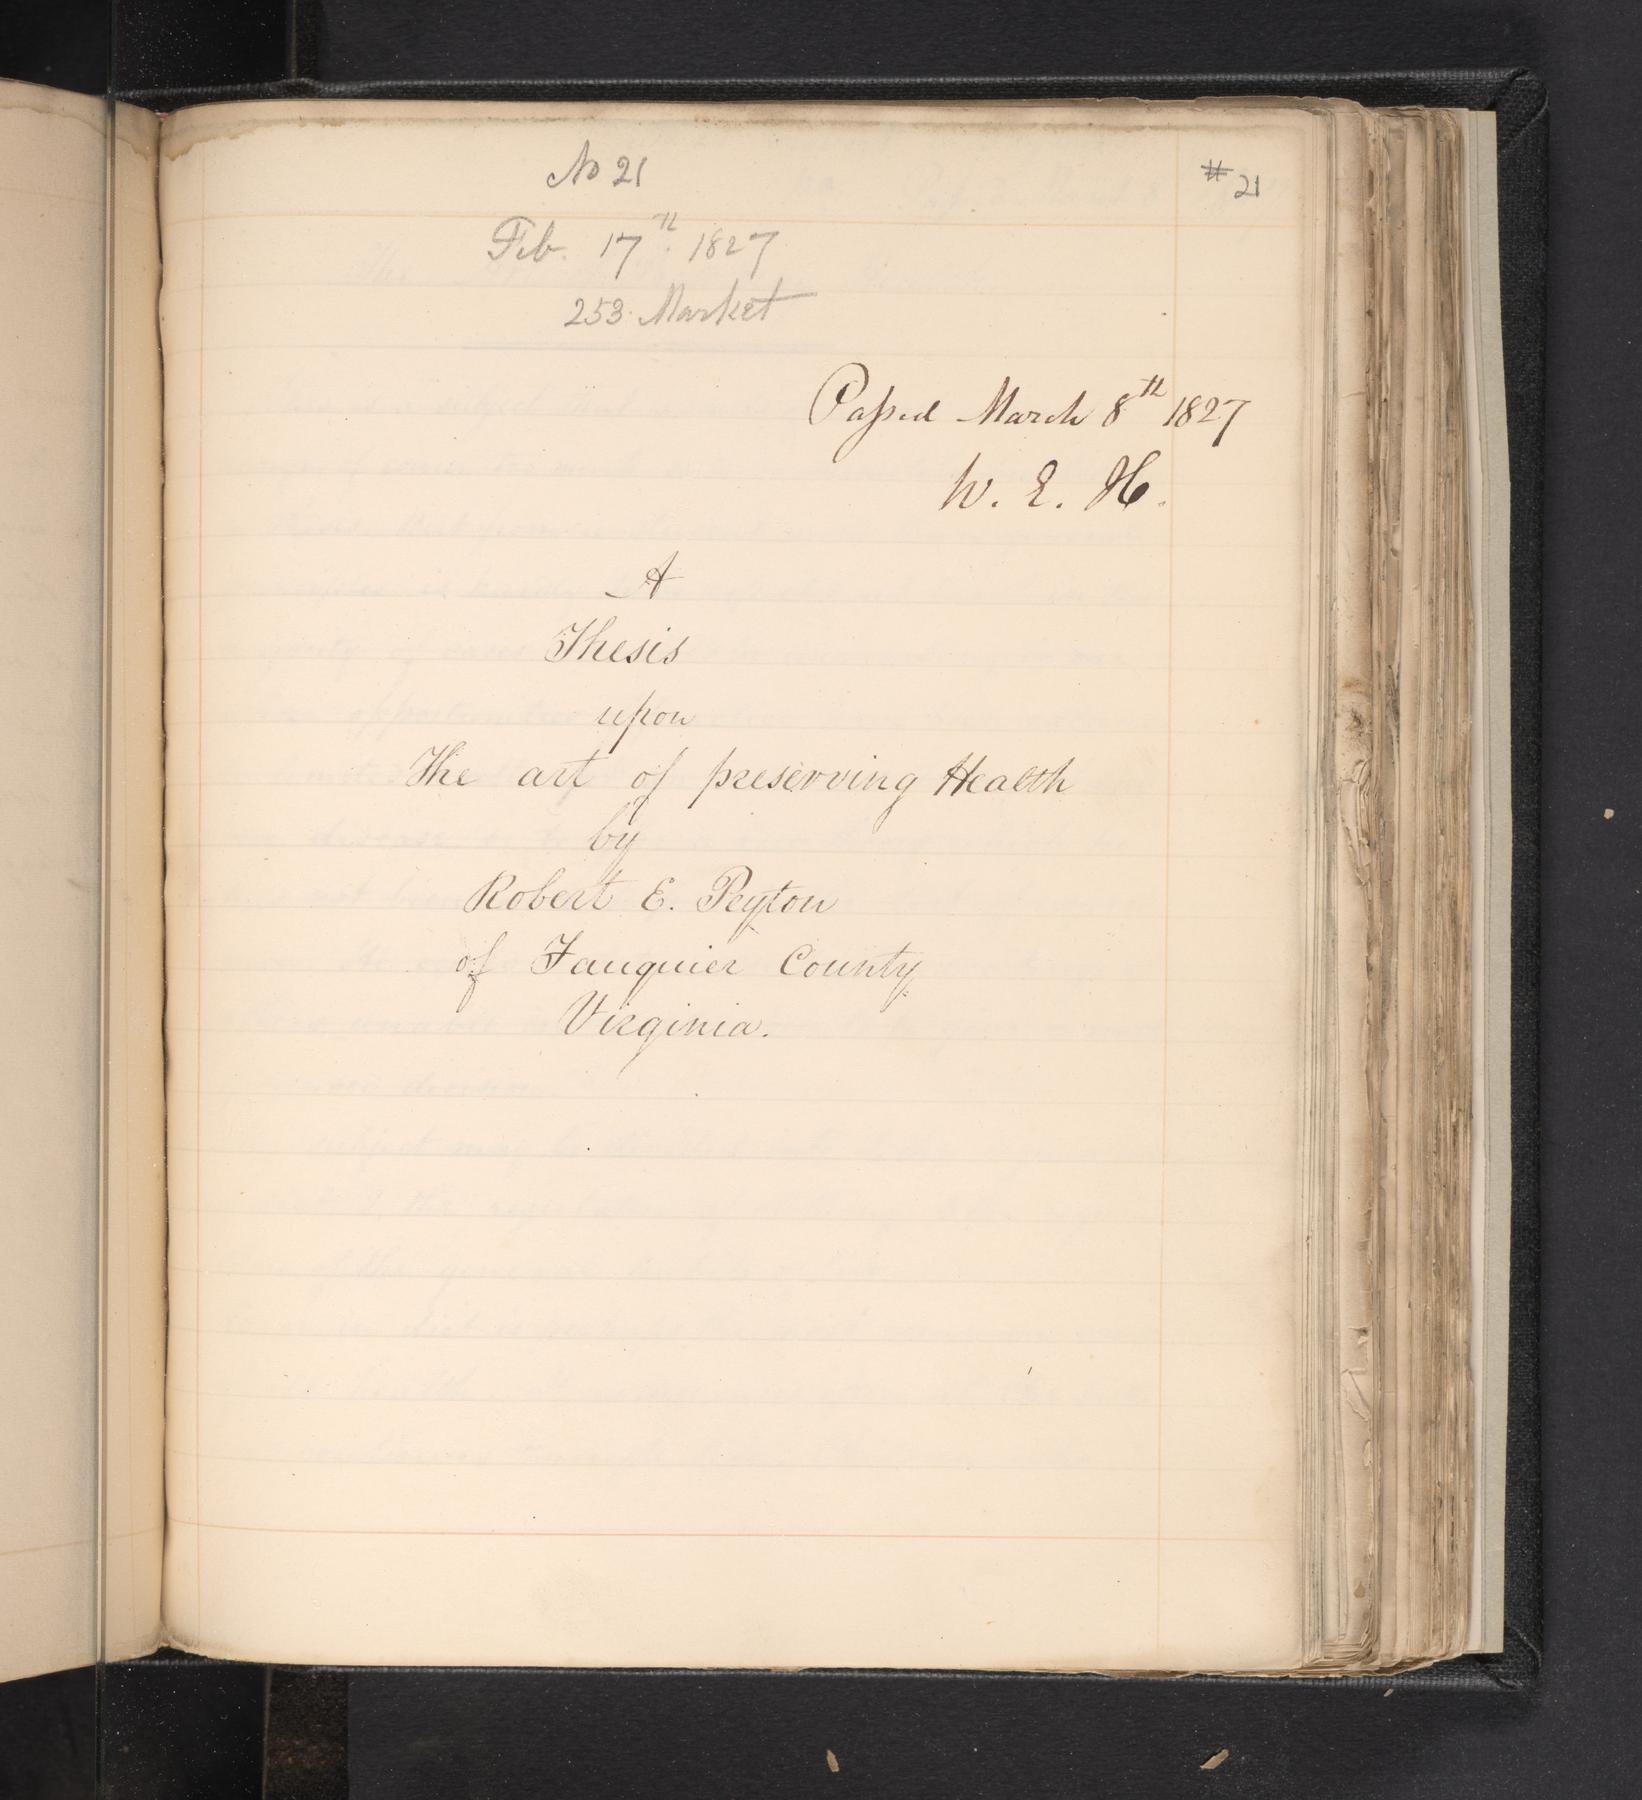 No 21
#21
Feb. 17th 1827
253 Market
Passed March 8th 1827
W. E. H.
A
Thesis
upon
The art of preserving Health
by
Robert E. Peyton
of Fauquier County
Virginia.